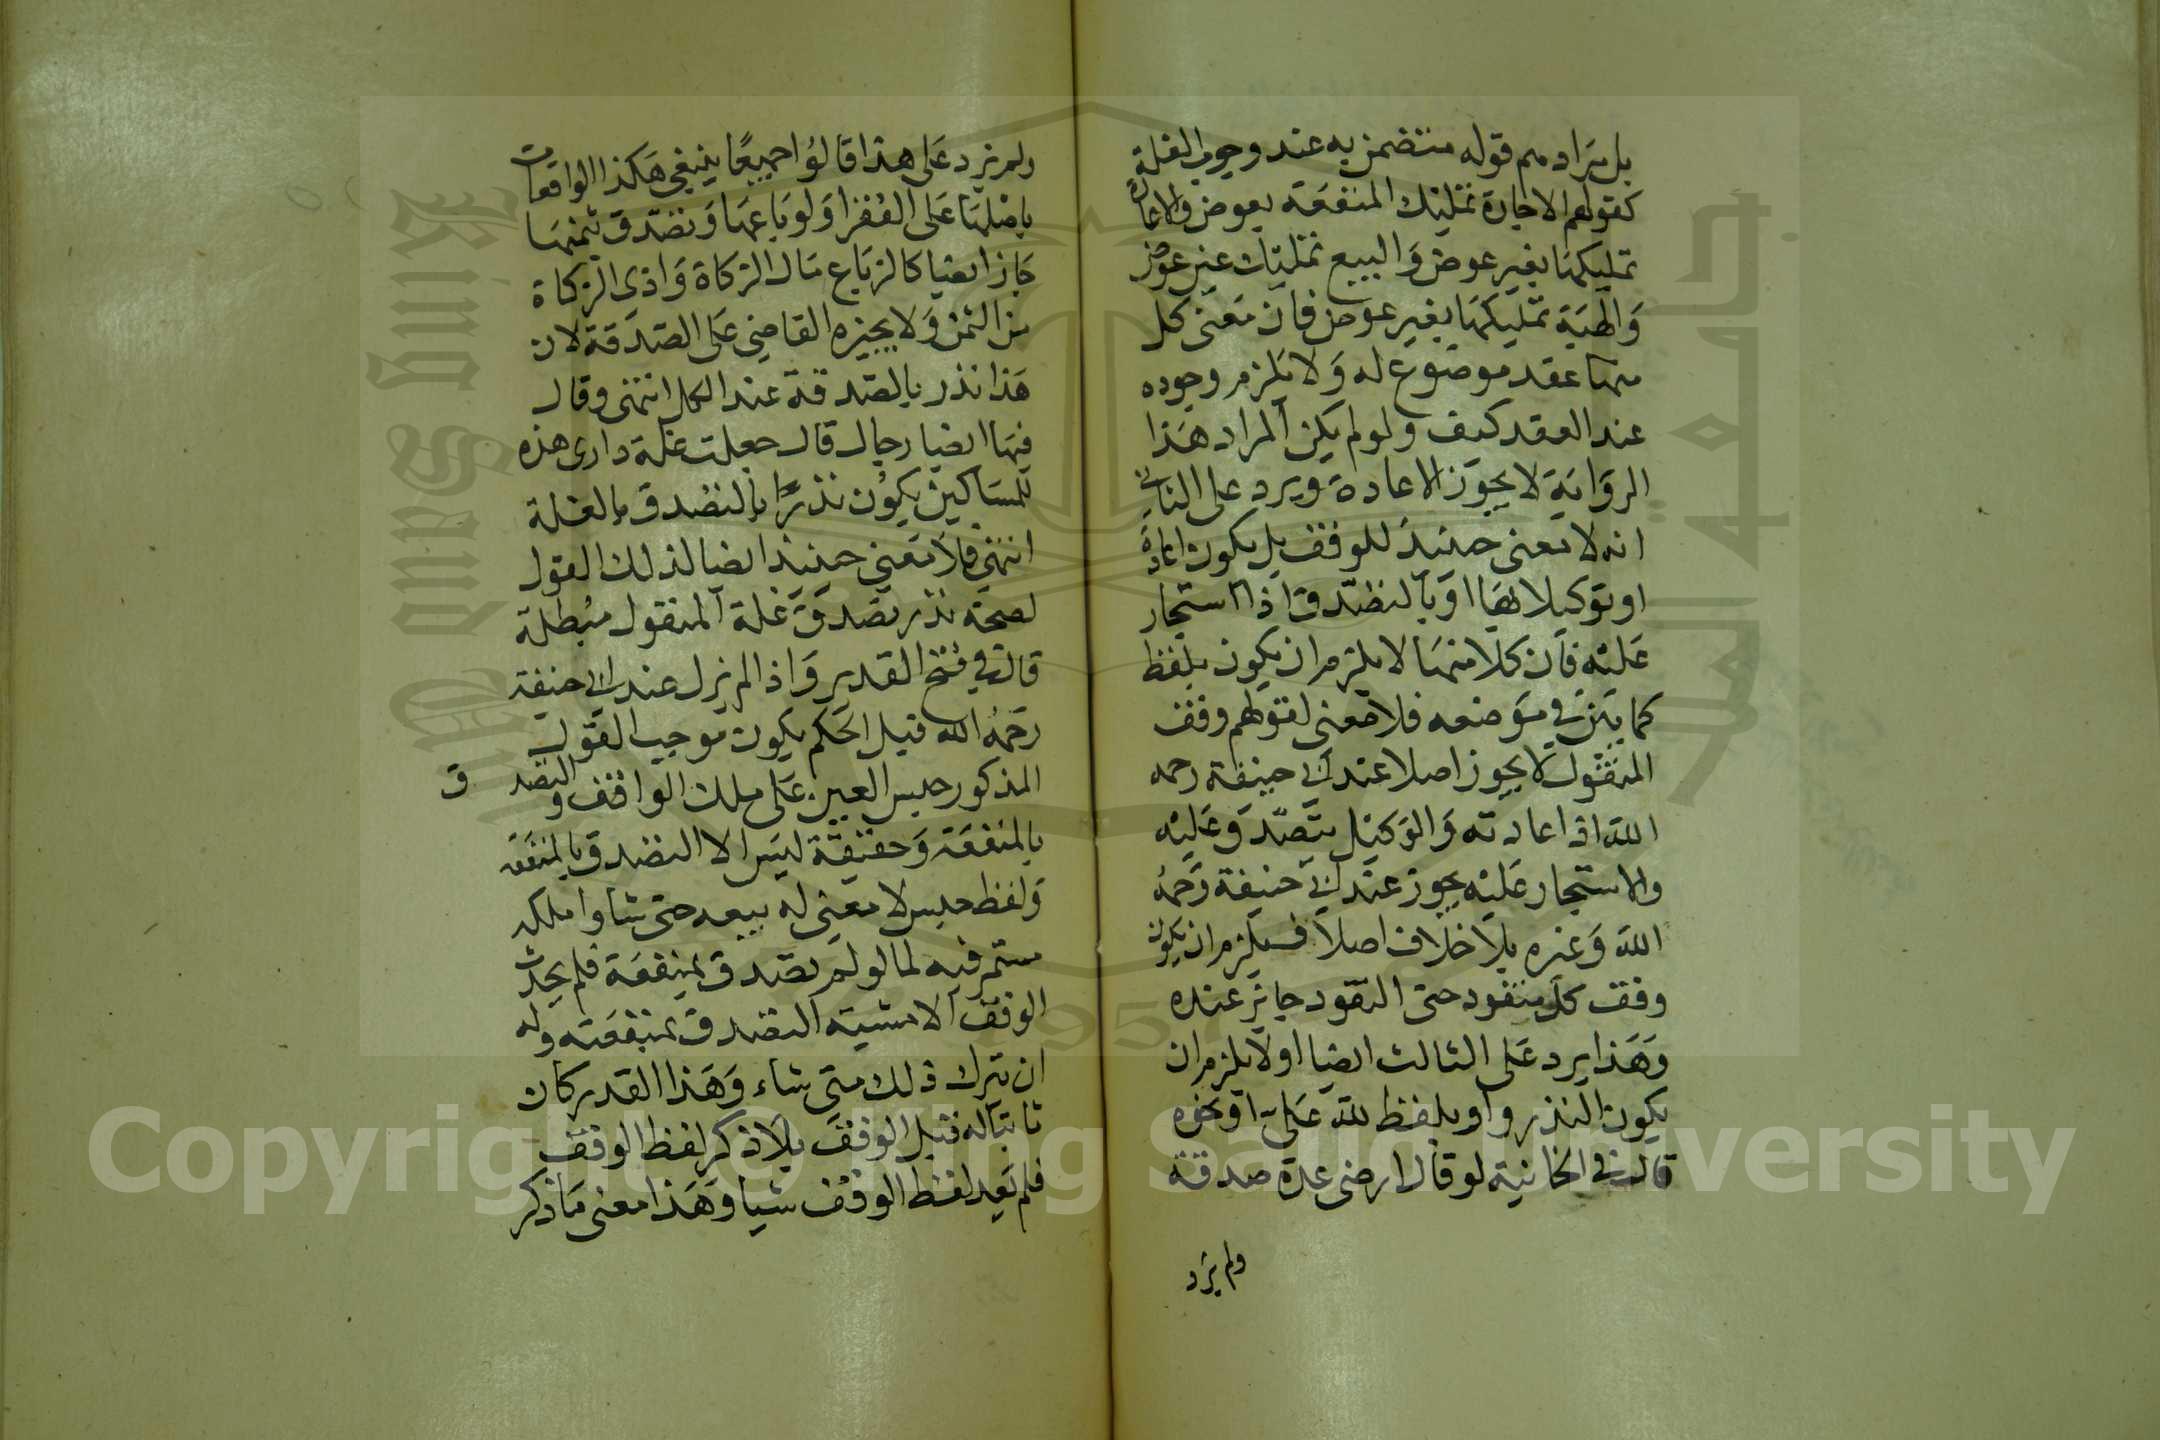 بل مراد هم قوله متضمن به عند وجوب الغلة
كقولهم الاجارة تمليك المنفعة بعوض والاعارة
تمليكها بغير عوض والبيع تمليك عين بعوض
والهبة تمليكها بغير عوض فان معنى كل
منها عقد موضوع له ولا يلزم وجوده
عند العقد كيف ولو لم يكن المراد هذا
الرواية لا يجوز الاعادة ويرد على الثاني
انه لا معنى حينئذ للوقف بل يكون اعادة
او توكيلا لها او بالتصدق اذا استجار
عليه فان كلا منها لا يلزم ان يكون بلفظ
كما بين في موضعه فلا معنى لقولهم وقف
المنقول لا يجوز اصلا عند ابي حنيفة رحمه
الله اذ اعادته والوكيل بتصدق عليه
والاستجار عليه يجوز عند ابي حنيفة رحمه
الله وغيره بلا خلاف اصلا فيلزم ان يكون
وقف كل منقود حتى النقود جايز عنده
وهذا يرد على الثالث ايضا اولا يلزم ان
يكون النذر واو بلفظ لله علي او نحوه
قال في الخانية لو قال ارضي عدة صدقة
ولم يزد
ولم يزد على هذا قالوا جميعا ينبغي هكذا الواقعات
باصلها على الفقرا ولو باعها وتصدق بثمنها
جاز ايضا كالزباع مال الزكاة واذى الزكاة
من الثمن ولا يجيزه القاضي على الصدقة لان
هذا نذر بالصدقة عند الكل انتهى وقال
فيها ايضا رجال قال جعلت غلة داري هذه
للمساكين يكون نذرا بالتصدق بالغلة
انتهى فلا معنى حينئذ ايضا لذلك القول
لصحة نذر تصدق غلة المنقول مبطلة
قال في فتح القدير واذ المزيل عند ابي حنيفة
رحمه الله قبل الحكم يكون موجب القول
المذكور حبس العين على ملك الواقف والتصد
ق
بالمنفعة وحقيقة ليس الا التصدق بالمنفعة
ولفظ حبس لا معنى له ببيعه حتى شاوا ملكه
مستمر فيه لما لو لم تصدق بمنفعة فلم يحدث
الوقف الا مشيته التصدق بمنفعته وله
ان يترك ذلك متى شاء وهذا القدر كان
ثابتا له قبل الوقف بلا ذكر لفظ الوقف
فلم يفد لفظ الوقف شيا وهذا معنى ما ذكر
Copyright © King Saud University
King Saud University
1957